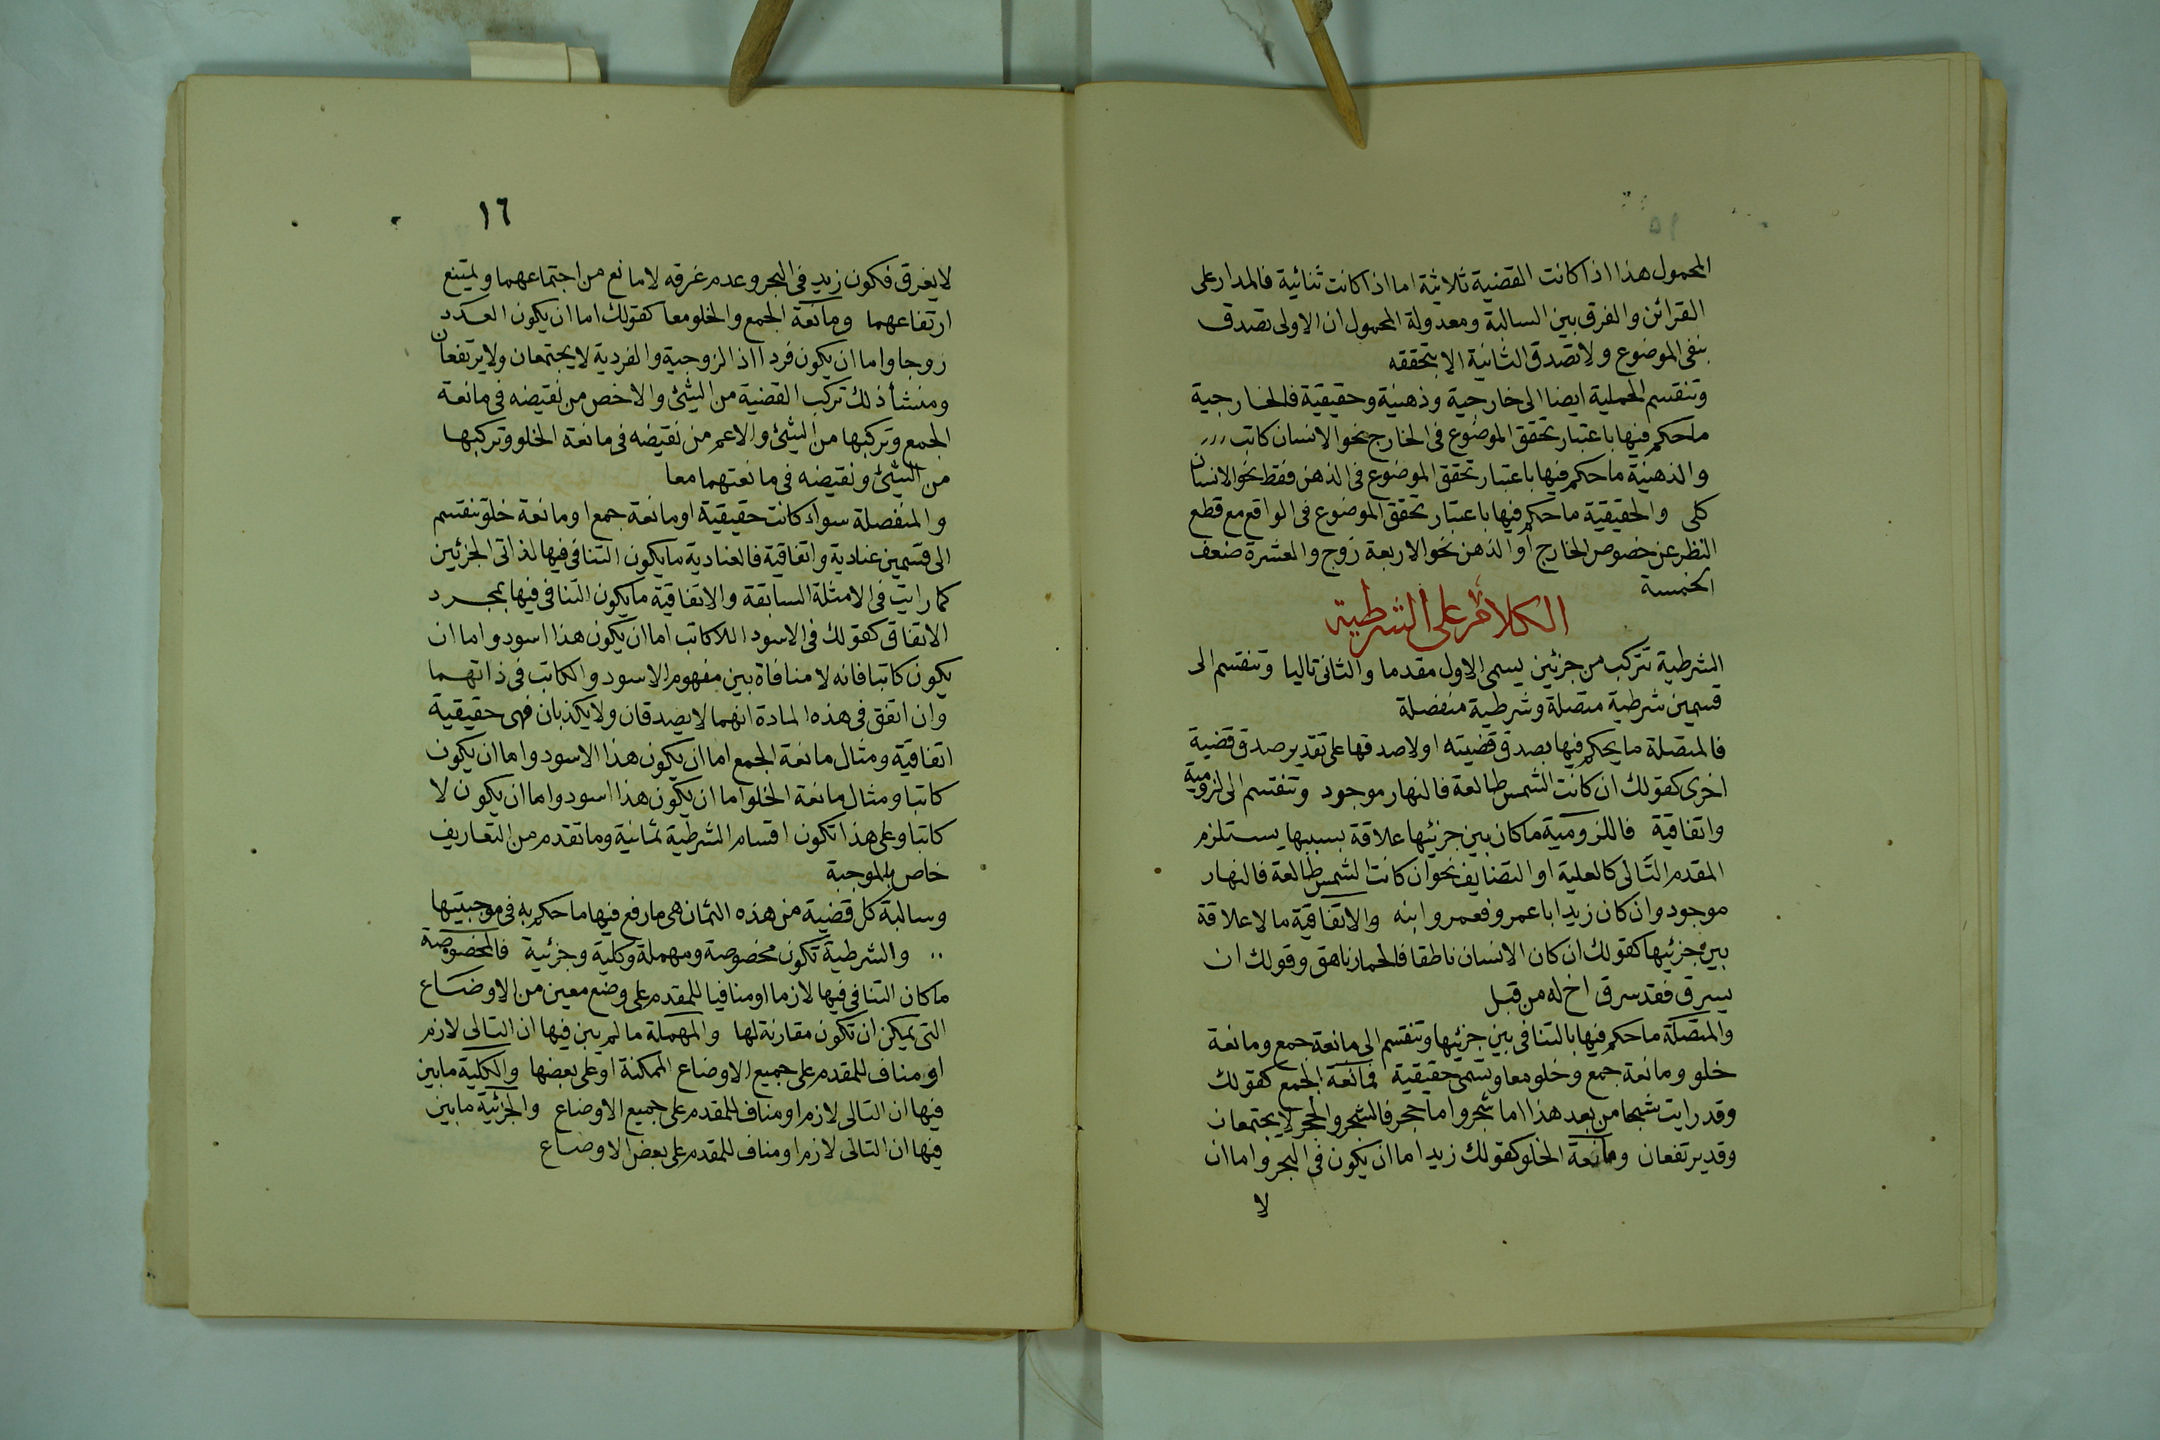 ١٥
المحمول هذا اذا كانت القضية ثلاثية اما اذا كانت ثنائية فالمدار على
القرائن والفرق بين السالبة ومعدولة المحمول ان الاولى تصدق
بنفي الموضوع ولا تصدق الثانية الا بتحققه
وتنقسم الحملية ايضا الى خارجية وذهنية وحقيقية فالخارجية
ما حكم فيها باعتبار تحقق الموضوع في الخارج نحو الانسان كاتب
والذهنية ما حكم فيها باعتبار تحقق الموضوع في الذهن فقط نحو الانسان
كلى والحقيقية ما حكم فيها باعتبار تحقق الموضوع في الواقع مع قطع
النظر عن خصوص الخارج أو الذهن نحو الاربعة زوج والعشرة ضعف
الخمسة
الكلام على الشرطية
الشرطية تتركب من جزئين يسمى الاول مقدما والثاني تاليا وتنقسم الى
قسمين شرطية متصلة وشرطية منفصلة
فالمتصلة ما يحكم فيها بصدق قضيته او لا صدقها على تقدير صدق قضية
اخرى كقولك ان كانت الشمس طالعة فالنهار موجود وتنقسم الى لزومية
واتفاقية فاللزومية ما كان بين جزئيها علاقة بسببها يستلزم
المقدم التالى كالعلية او التضايف نحو ان كانت الشمس طالعة فالنهار
موجود وان كان زيد ابا عمرو فعمرو ابنه والاتفاقية ما لا علاقة
بين جزئيها كقولك ان كان الانسان ناطقا فالحمار ناهق وقولك ان
يسرق فقد سرق اخ له من قبل
والمتصلة ما حكم فيها بالتنافى بين جزئيها وتنقسم الى مانعة جمع ومانعة
خلو ومانعة جمع وخلو معا وتسمى حقيقية فمانعة الجمع كقولك
وقد رايت شبحا من بعد هذا اما شجر واما حجر فالشجر والحجر لا يجتمعان
وقد يرتفعان ومانعة الخلو كقولك زيد اما ان يكون في البحر واما ان
لا
١٦
لا يغرق فكون زيد في البحر وعدم غرقه لا مانع من اجتماعهما ويمتنع
ارتفاعهما ومانعة الجمع والخلو معا كقولك اما ان يكون العدد
زوجا واما ان يكون فردا اذ الزوجية والفردية لا يجتمعان ولا يرتفعان
ومنشأ ذلك تركب القضية من الشئ والاخص من نقيضه في مانعة
الجمع وتركبها من الشئ والاعم من نقيضه في مانعة الخلو وتركبها
من الشئ ونقيضه في مانعتهما معا
والمنفصلة سواء كانت حقيقية او مانعة جمع او مانعة خلو تنقسم
الى قسمين عنادية واتفاقية فالعنادية ما يكون التنافى فيها لذاتي الجزئين
كما رايت في الامثلة السابقة والاتفاقية ما يكون التنافى فيها بمجرد
الاتفاق كقولك في الاسود اللا كاتب اما ان يكون هذا اسود واما ان
يكون كاتبا فانه لا منافاة بين مفهوم الاسود والكاتب في ذاتهما
وان اتفق في هذه المادة انهما لا يصدقان ولا يكذبان فهى حقيقية
اتفاقية ومثال مانعة الجمع اما ان يكون هذا الاسود واما ان يكون
كاتبا ومثال مانعة الخلو اما ان يكون هذا اسود واما ان يكون لا
كاتبا وعلى هذا تكون اقسام الشرطية ثمانية وما تقدم من التعاريف
خاص بالموجبة
وسالبة كل قضية من هذه الثمان هى ما رفع فيها ما حكم به في موجبتيها
والشرطية تكون مخصوصة ومهملة وكلية وجزئية فالمخصوصة
ما كان التنافى فيها لازما او منافيا للمقدم على وضع معين من الاوضاع
التى يمكن ان تكون مقارنة لها والمهملة ما لم يبين فيها ان التالى لازم
او مناف للمقدم على جميع الاوضاع الممكنة او على بعضها والكلية ما بين
فيها ان التالى لازم او مناف للمقدم على جميع الاوضاع والجزئية ما بين
فيها ان التالى لازم او مناف للمقدم على بعض الاوضاع